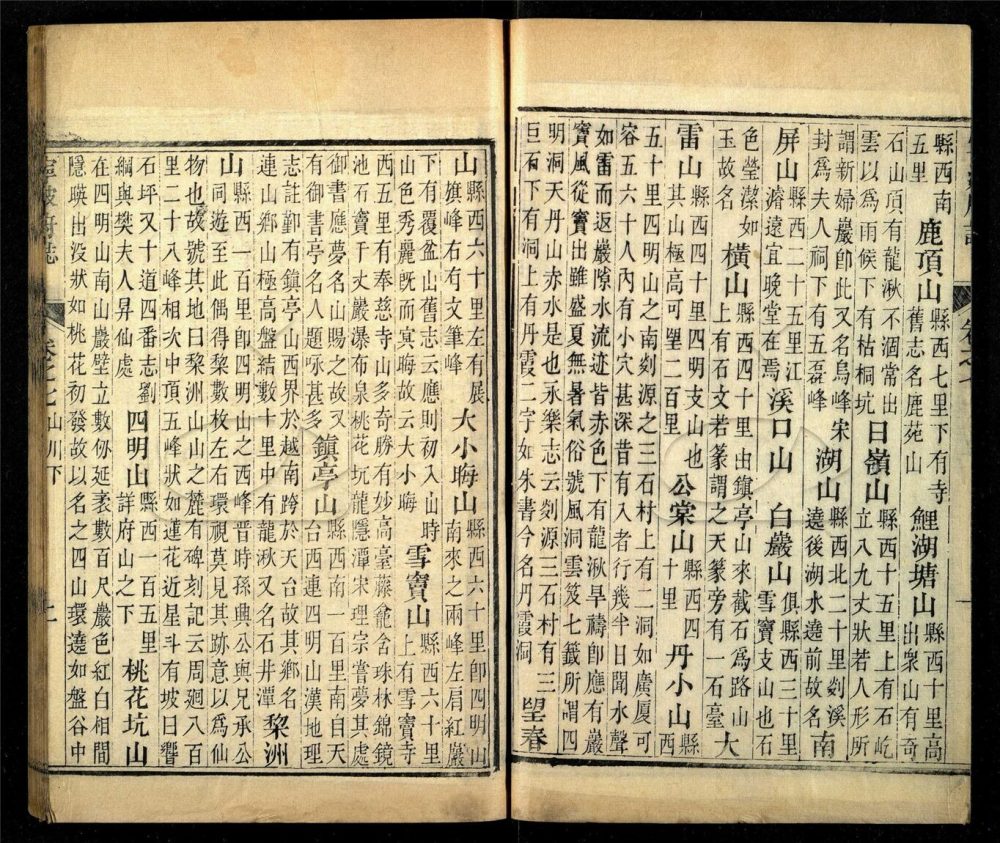 縣西南五里鹿頂山縣西七里下有寺舊志名鹿苑山鯉湖塘山縣西十里高出衆山有奇
石山頂有龍湫不涸常出雲以爲雨候下有枯桐坑日嶺山縣西十五里上有石屹立八九丈狀若人形所
謂新婦巖卽此又名烏峰宋封爲夫人祠下有五磊峰湖山縣西北二十里剡溪遶後湖水遶前故名南
屏山縣西二十五里江濬遠宜晚堂在焉溪口山白巖山俱縣西三十里雪竇支山也石
色瑩潔如玉故名橫山縣西四十里由鎮亭山來截石爲路山上有石文若篆謂之天篆旁有一石臺大
雷山縣西四十里四明支山也其山極高可望二百里公棠山縣西四十里丹小山縣西
五十里四明山之南剡源之三石村上有二洞如廣厦可容五六十人內有小穴甚深昔有入者行幾半日聞水聲
如雷而返巖隙水流迹皆赤色下有龍湫旱禱卽應有巖竇風從竇出雖盛夏無暑氣俗號風洞雲笈七籤所謂四
明洞天丹山赤水是也永樂志云剡源三石村有三巨石下有洞上有丹霞二字如朱書今名丹霞洞望春
山縣西六十里左有展旗峰右有文筆峰大小晦山縣西六十里卽四明山南來之兩峰左肩紅巖
下有覆盆山舊志云應則初入山時山色秀麗既而冥晦故云大小晦雪竇山縣西六十里上有雪竇寺
西五里有奉慈寺山多奇勝有妙高臺藤龕含珠林錦鏡池石竇于丈巖瀑布泉桃花坑龍隱潭宋理宗嘗夢其處
御書應夢名山賜之故又有御書亭名人題咏甚多鎮亭山縣西南一百里南自天台西連四明山漢地理
志註鄞有鎮亭山西界於越南跨於天台故其鄉名連山鄉山極高盤結數十里中有龍湫又名石井潭黎洲
山縣西一百里卽四明山之西峰晋時孫興公與兄承公同遊至此偶得棃數枚左右環視莫見其跡意以爲仙
物也故號其地曰黎洲山山之麓有碑刻記云周廻八百里二十八峰相次中頂五峰狀如蓮花近星斗有坡曰響
石坪又十道四番志劉綱與樊夫人昇仙處四明山縣西一百五里詳府山之下桃花坑山
在四明山南山巖壁立數仞延袤數百尺巖色紅白相間隱暎出没狀如桃花初發故以名之四山環遶如盤谷中
寧波府志 卷之七 山川下